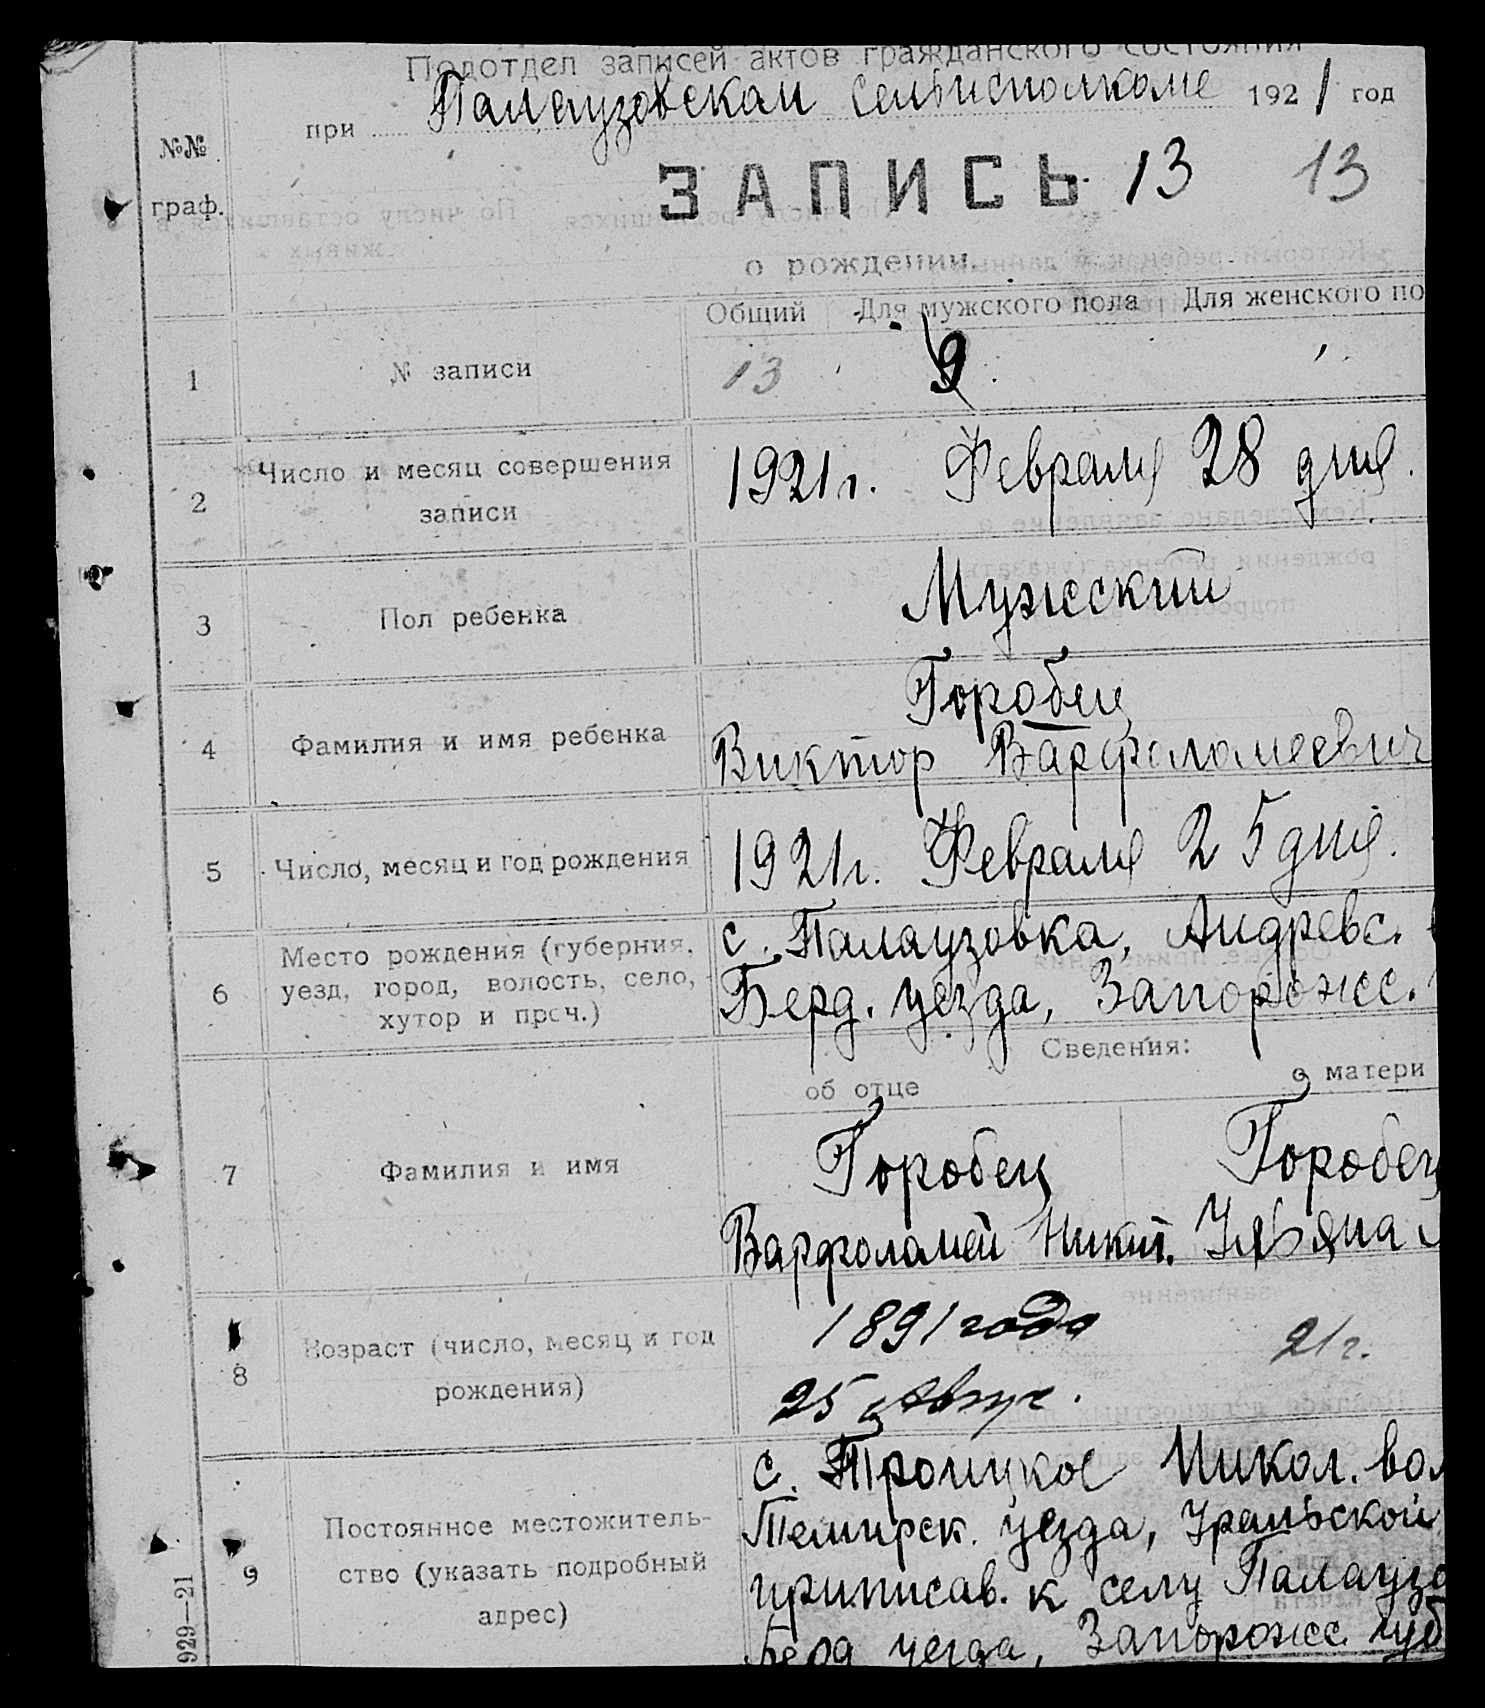 Подотдел записей актов гражданского состояния
при Палаузовском сельисполкоме 1921 год
№№ граф.
ЗАПИСЬ 13 13
о рождении.
Общий Для мужского пола Для женского по
1 № записи 13 9
2 Число и месяц совершения записи 1921 г. Февраля 28 дня.
3 Пол ребенка Мужеский
4 Фамилия и имя ребенка Горобец
Виктор Варфоломеевич
5 Число, месяц и год рождения 1921 г. Февраля 25 дня.
6 Место рождения (губерния, уезд, город, волость, село, хутор и проч.) с. Палаузовка, Андревс.
Берд. уезда, Запорожс.
Сведения:
об отце о матери
7 Фамилия и имя Горобец Горобец
Варфоломей Никит. Ульяна
8 Возраст (число, месяц и год рождения) 1891 года 21 г.
25 Август.
9 Постоянное местожительство (указать подробный адрес) с. Троицкое Никол. вол
Темирск. уезда, Уральской
приписав. к селу Палаузо
Берд уезда, Запорожс. губ
929—21